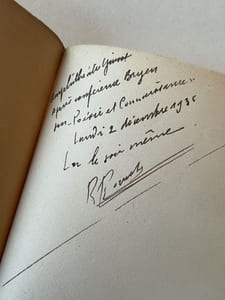 Amphithéâtre Guizot
après conférence Bryen
sur "Poésie et Connaissance"
Lundi 2 décembre 1935
Lu le soir même